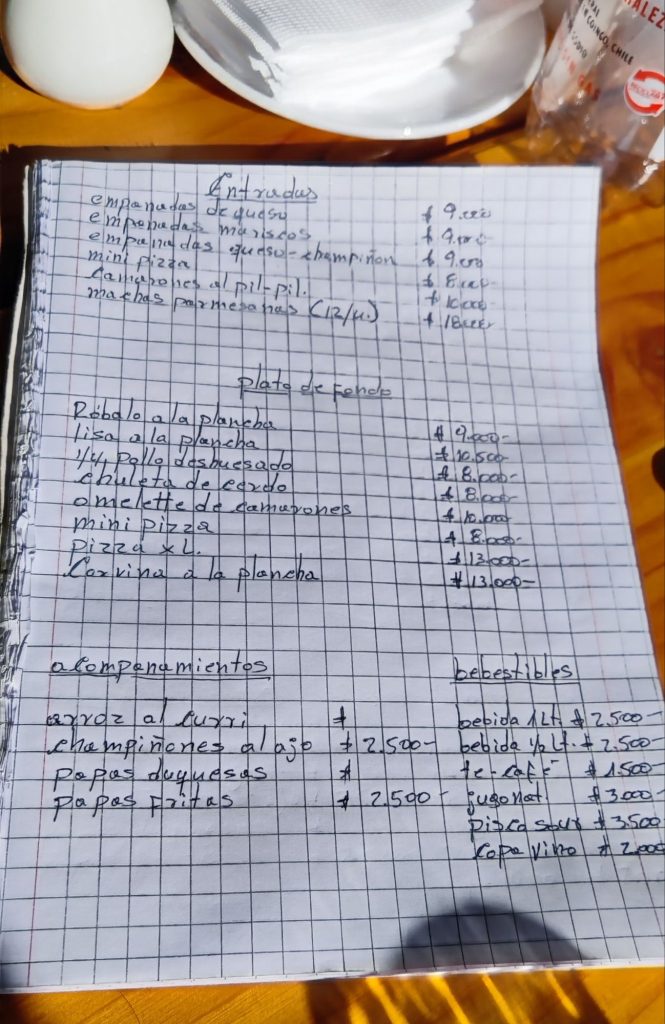 ALEZ
COINCO, CHILE
GAS
Entradas
empanadas de queso $ 9.000
empanadas mariscos $ 9.000
empanadas queso-champiñon $ 9.000
mini pizza $ 8.000
Camarones al pil-pil. $ 10.000
machas parmesanas (12/u.) $ 18.000
plato de fondo
Róbalo a la plancha $ 9.000-
lisa a la plancha $ 10.500
1/4 pollo deshuesado $ 8.000-
chuleta de cerdo $ 8.000-
omelette de camarones $ 10.000
mini pizza $ 8.000-
pizza XL. $ 13.000-
Corvina a la plancha $ 13.000-
acompañamientos
arroz al curri $
champiñones al ajo $ 2.500-
papas duquesas $
papas fritas $ 2.500-
bebestibles
bebida 1Lt $ 2.500-
bebida 1/2 Lt. $ 2.500-
te-café $ 1.500
jugo nat. $ 3.000-
pisco sour $ 3.500
Copa vino $ 2.000